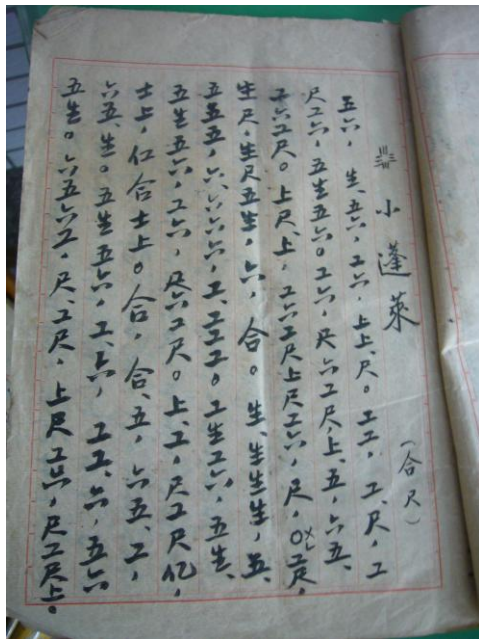 小蓬萊 （合尺）
五六，生、五六，工六，上上、尺。工工，工、尺，工
尺工六，五生五六。工六，尺六工尺、上、五，六五、
工六工尺。上尺、上，工六工尺上尺工六，尺，工尺，
生尺，生尺五生，六，合。生、生生生，五、
五五五，六、六六六，工、工工工。工生工六，五生、
五生五六，工六，尺六工尺。上、工，尺工尺亿，
士上，仁合士上。合，合、五，六五、工，
六五、生。五生五六，工、六，工工、六，五六
五生。六五六工，尺、工尺，上尺工六，尺工尺上。